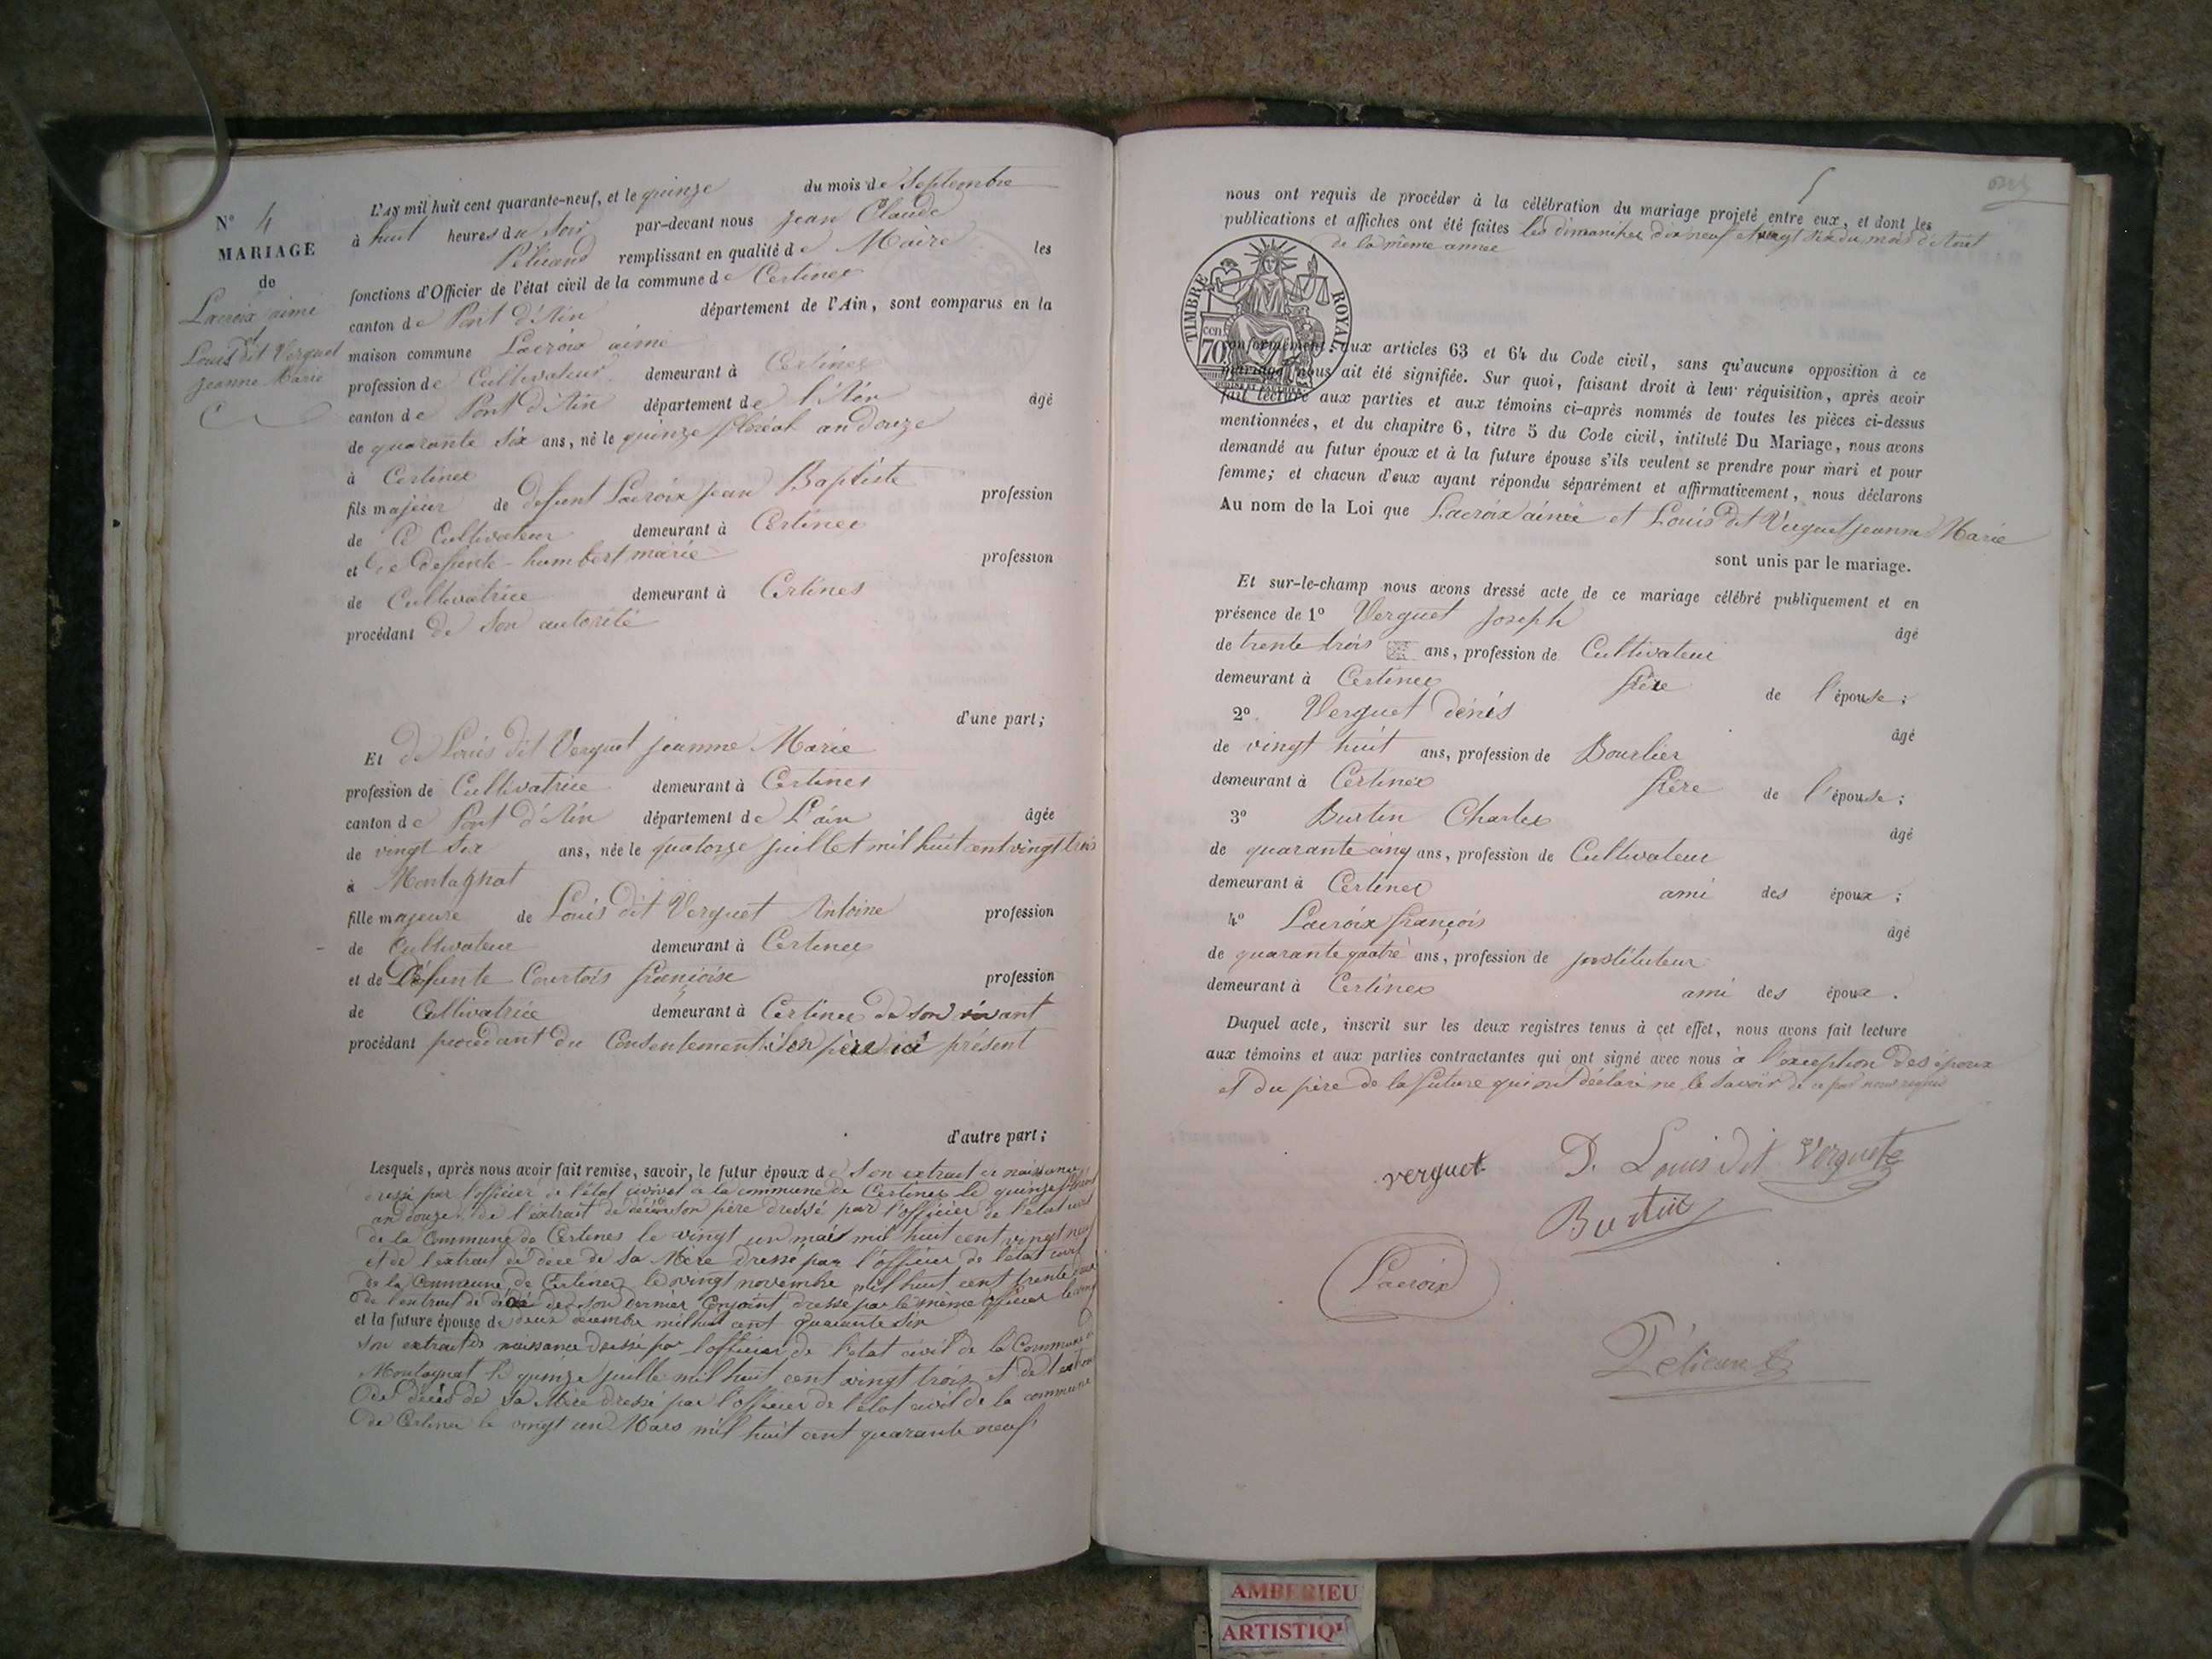 N° 4
MARIAGE
de
Lacroix aimé
et
Louis dit Verguet
Jeanne Marie
L'AN mil huit cent quarante-neuf, et le quinze du mois de Septembre
à huit heures du Soir par-devant nous Jean Claude
Pélicand remplissant en qualité de Maire les
fonctions d'Officier de l'état civil de la commune de Certines
canton de Pont d'Ain département de l'Ain, sont comparus en la
maison commune Lacroix aimé
profession de Cultivateur demeurant à Certines
canton de Pont d'Ain département de l'Ain âgé
de quarante six ans, né le quinze floréal an douze
à Certines
fils majeur de defunt Lacroix Jean Baptiste profession
de Cultivateur demeurant à Certines
et de defunte humbert marie profession
de Cultivatrice demeurant à Certines
procédant de Son autorité
d'une part;
Et de Louis dit Verguet Jeanne Marie
profession de Cultivatrice demeurant à Certines
canton de Pont d'Ain département de L'ain âgée
de vingt Six ans, née le quatorze juillet mil huit cent vingt trois
à Montagnat
fille majeure de Louis dit Verguet Antoine profession
de Cultivateur demeurant à Certines
et de Défunte Courtois françoise profession
de Cultivatrice demeurant à Certines de son vivant
procédant procédant du Consentement de son père ici présent
d'autre part;
Lesquels, après nous avoir fait remise, savoir, le futur époux de Son extrait de naissance
dressé par l'officier de l'état civil de la commune de Certines le quinze floréal
an douze, de l'extrait de décès de son père dressé par l'officier de l'état civil
de la Commune de Certines le vingt un mai mil huit cent vingt neuf
et de l'extrait de décè de Sa Mère dressé par l'officier de l'état civil
de la Commune de Certines le vingt novembre mil huit cent trente
de l'extrait de décé de son dernier Conjoint dressé par le même officier le
et la future épouse de deux décembre mil huit cent quarante Six
Son extrait de naissance dressé par l'officier de l'état civil de la Commune de
Montagnat le quinze juillet mil huit cent vingt trois et de l'extrait
de décès de Sa Mère dressé par l'officier de l'état civil de la commune
de Certines le vingt un Mars mil huit cent quarante neuf
5
nous ont requis de procéder à la célébration du mariage projeté entre eux, et dont les
publications et affiches ont été faites les dimanches dix neuf et vingt six du mois d'Aout
de la même année
TIMBRE ROYAL
70 cen.
conformément aux articles 63 et 64 du Code civil, sans qu'aucune opposition à ce
mariage nous ait été signifiée. Sur quoi, faisant droit à leur réquisition, après avoir
fait lecture aux parties et aux témoins ci-après nommés de toutes les pièces ci-dessus
mentionnées, et du chapitre 6, titre 5 du Code civil, intitulé Du Mariage, nous avons
demandé au futur époux et à la future épouse s'ils veulent se prendre pour mari et pour
femme; et chacun d'eux ayant répondu séparément et affirmativement, nous déclarons
Au nom de la Loi que Lacroix aimé et Louis dit Verguet Jeanne Marie
sont unis par le mariage.
Et sur-le-champ nous avons dressé acte de ce mariage célébré publiquement et en
présence de 1° Verguet Joseph âgé
de trente trois ans, profession de Cultivateur
demeurant à Certines frère de l'épouse;
2° Verguet dénis âgé
de vingt huit ans, profession de Bourlier
demeurant à Certines frère de l'épouse;
3° Burtin Charles âgé
de quarante cinq ans, profession de Cultivateur
demeurant à Certines ami des époux;
4° Lacroix françois âgé
de quarante quatre ans, profession de jnstituteur
demeurant à Certines ami des époux.
Duquel acte, inscrit sur les deux registres tenus à cet effet, nous avons fait lecture
aux témoins et aux parties contractantes qui ont signé avec nous à l'exception des époux
et du père de la future qui ont déclaré ne le Savoir de ce par nous requis
verguet D. Louis Dit Verguet
Burtin
Lacroix
Pélicand
AMBERIEU
ARTISTIQ